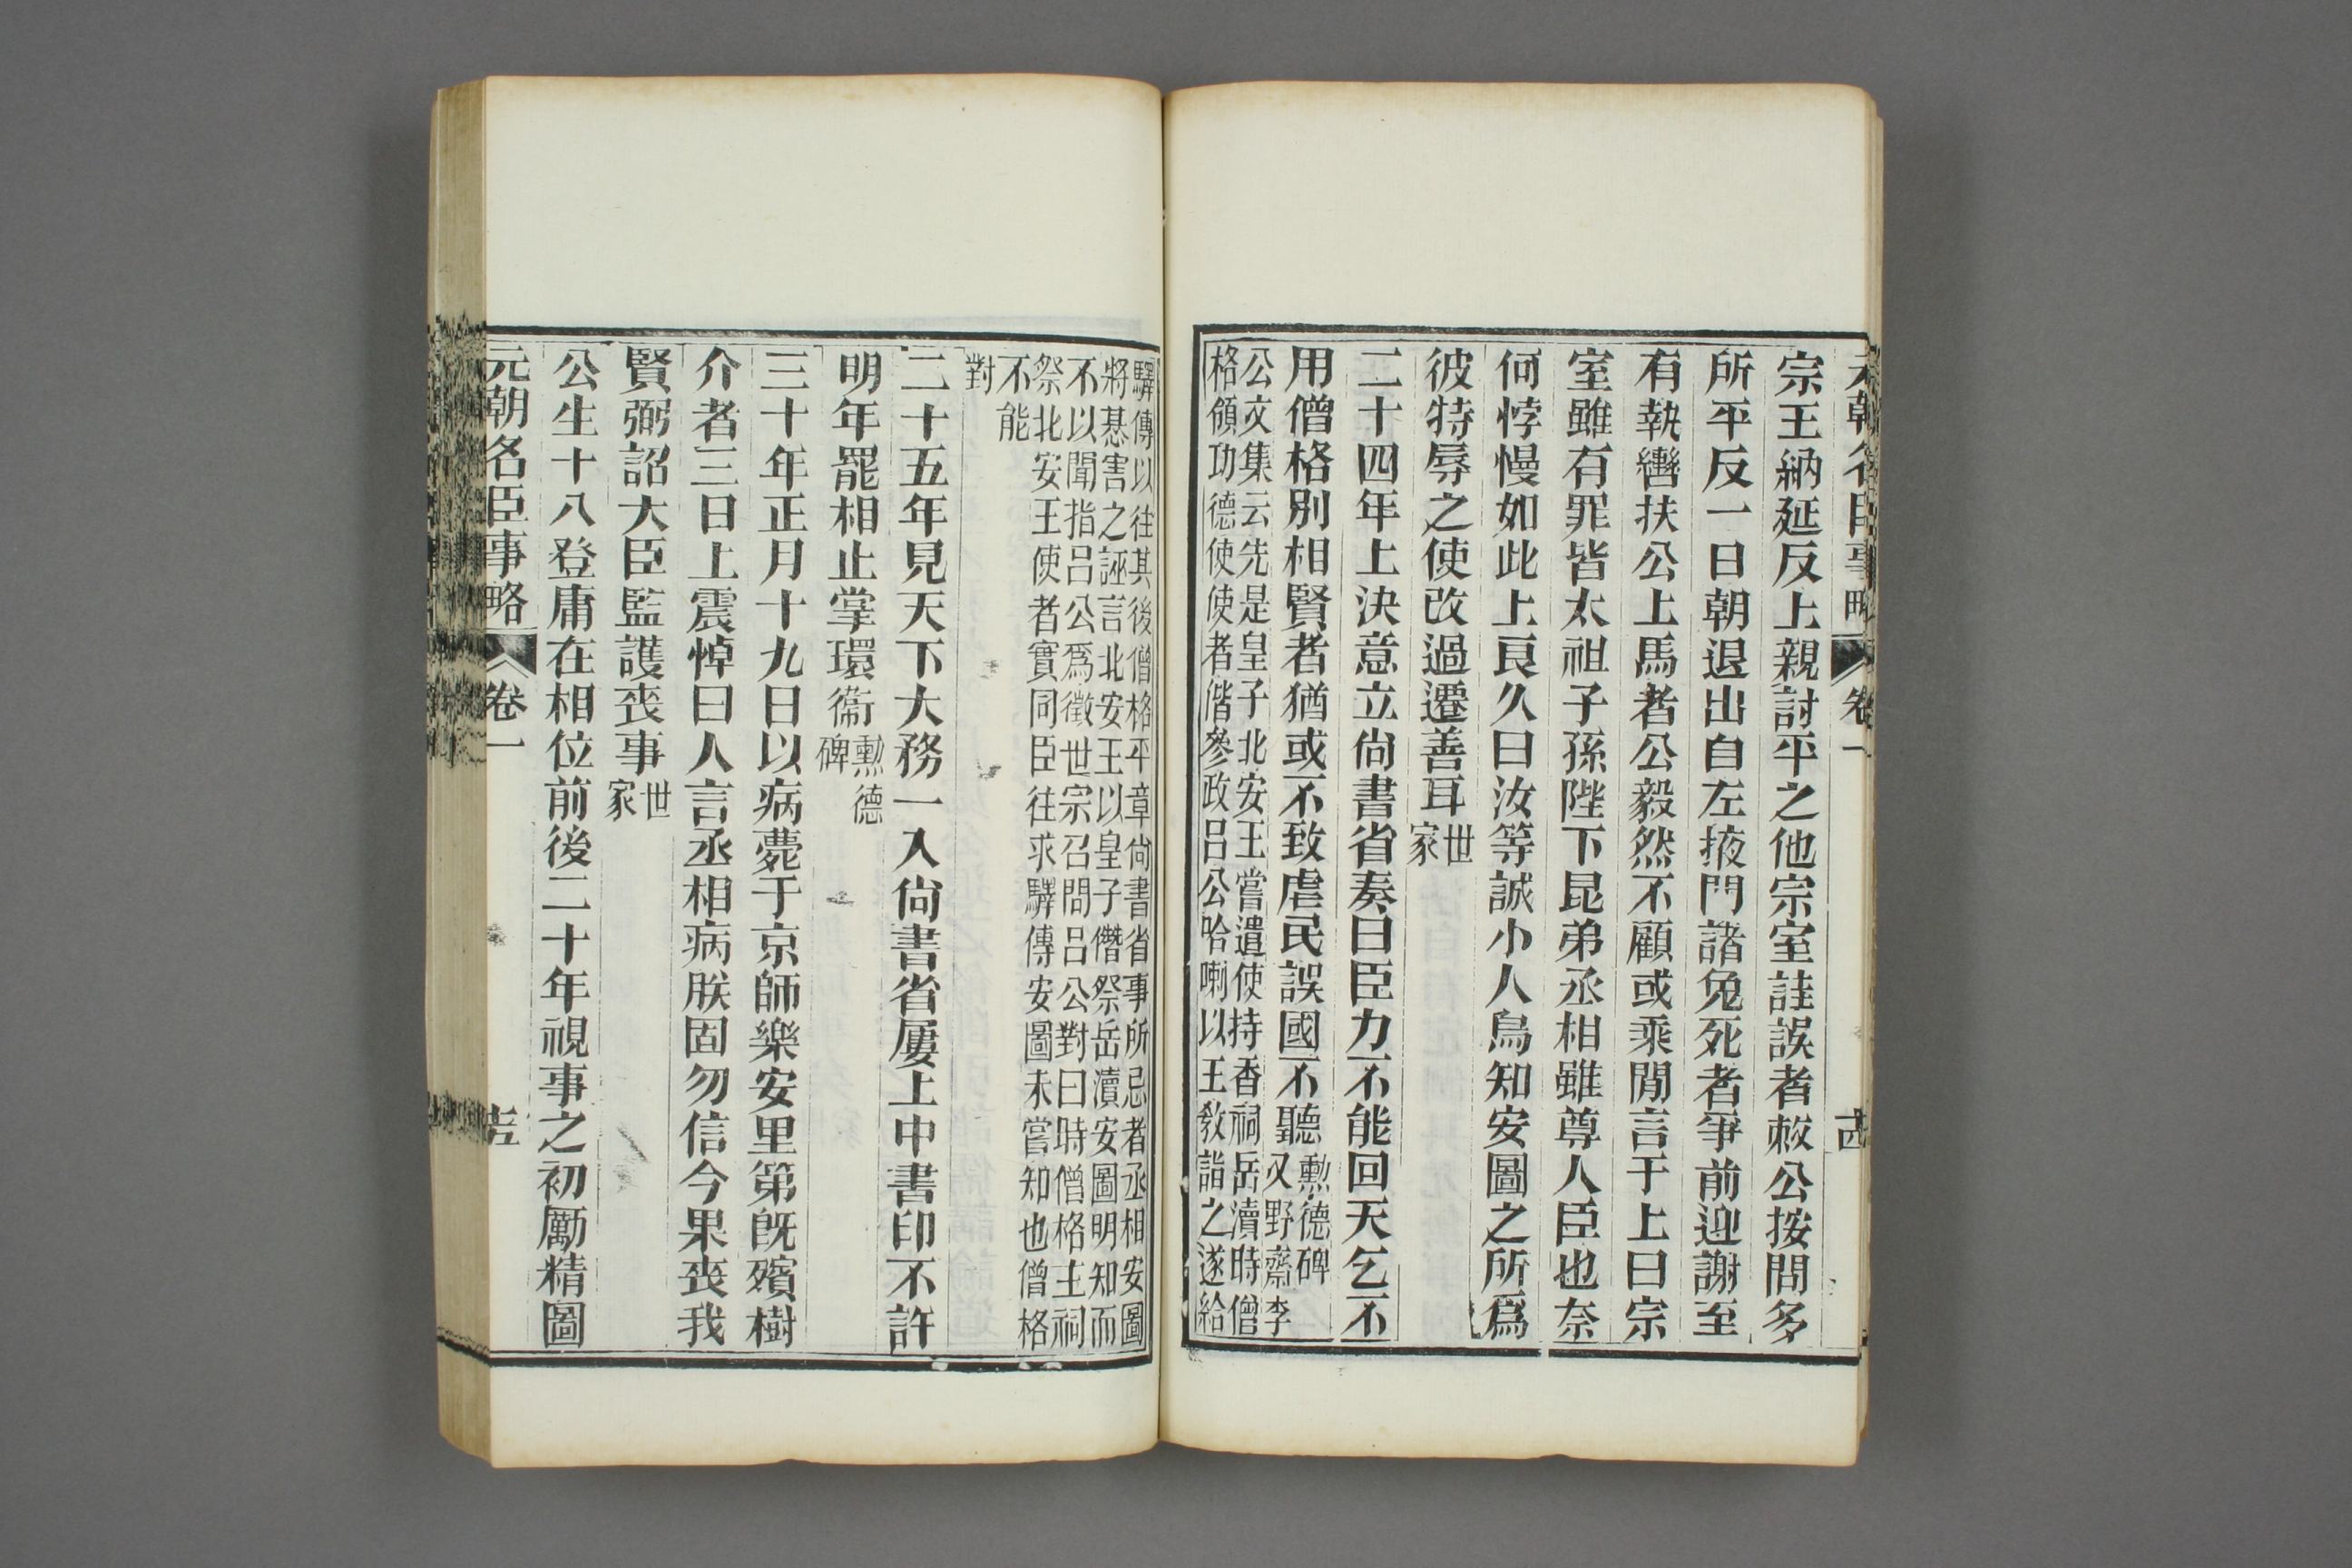 元朝名臣事略 卷一 十四
宗王納延反上親討平之他宗室詿誤者敕公按問多
所平反一日朝退出自左掖門諸免死者爭前迎謝至
有執轡扶公上馬者公毅然不顧或乘閒言于上曰宗
室雖有罪皆太祖子孫陛下昆弟丞相雖尊人臣也奈
何悖慢如此上良久曰汝等誠小人烏知安圖之所爲
彼特辱之使改過遷善耳世家
二十四年上決意立尙書省奏曰臣力不能回天乞不
用僧格別相賢者猶或不致虐民誤國不聽勳德碑又野齋李
公文集云先是皇子北安王嘗遣使持香祠岳瀆時僧
格領功德使使者偕參政呂公哈喇以王敎詣之遂給
驛傳以往其後僧格平章尙書省事所忌者丞相安圖
將惎害之誣言北安王以皇子僭祭岳瀆安圖明知而
不以聞指呂公爲徵世宗召問呂公對曰時僧格主祠
祭北安王使者實同臣往求驛傳安圖未嘗知也僧格
不能
對
二十五年見天下大務一入尙書省屢上中書印不許
明年罷相止掌環衞勳德碑
三十年正月十九日以病薨于京師樂安里第旣殯樹
介者三日上震悼曰人言丞相病朕固勿信今果喪我
賢弼詔大臣監護喪事世家
公生十八登庸在相位前後二十年視事之初厲精圖
元朝名臣事略 卷一 十五